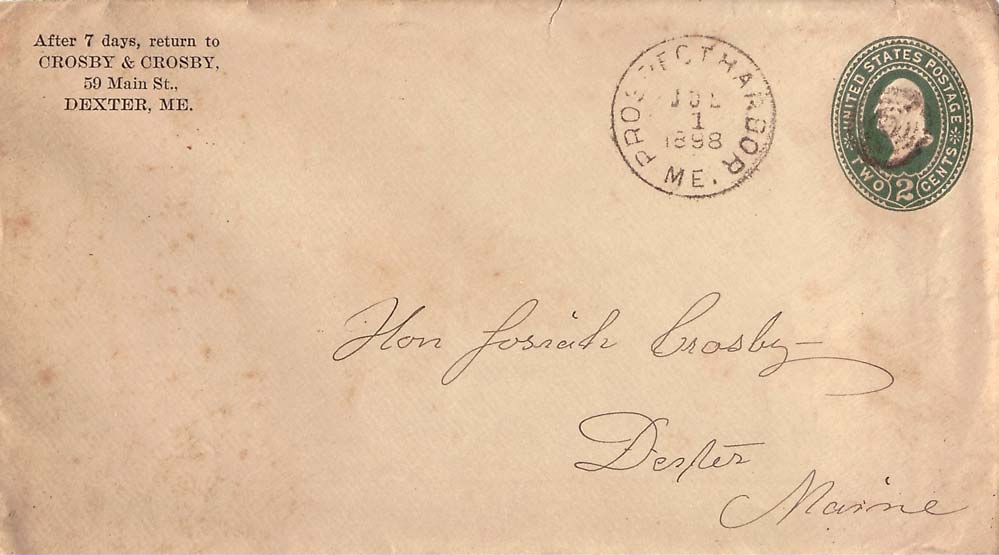 After 7 days, return to
CROSBY & CROSBY,
59 Main St.,
DEXTER, ME.
PROSPECT HARBOR
JUL
1
1898
ME.
UNITED STATES POSTAGE
TWO 2 CENTS
Hon Josiah Crosby
Dexter
Maine